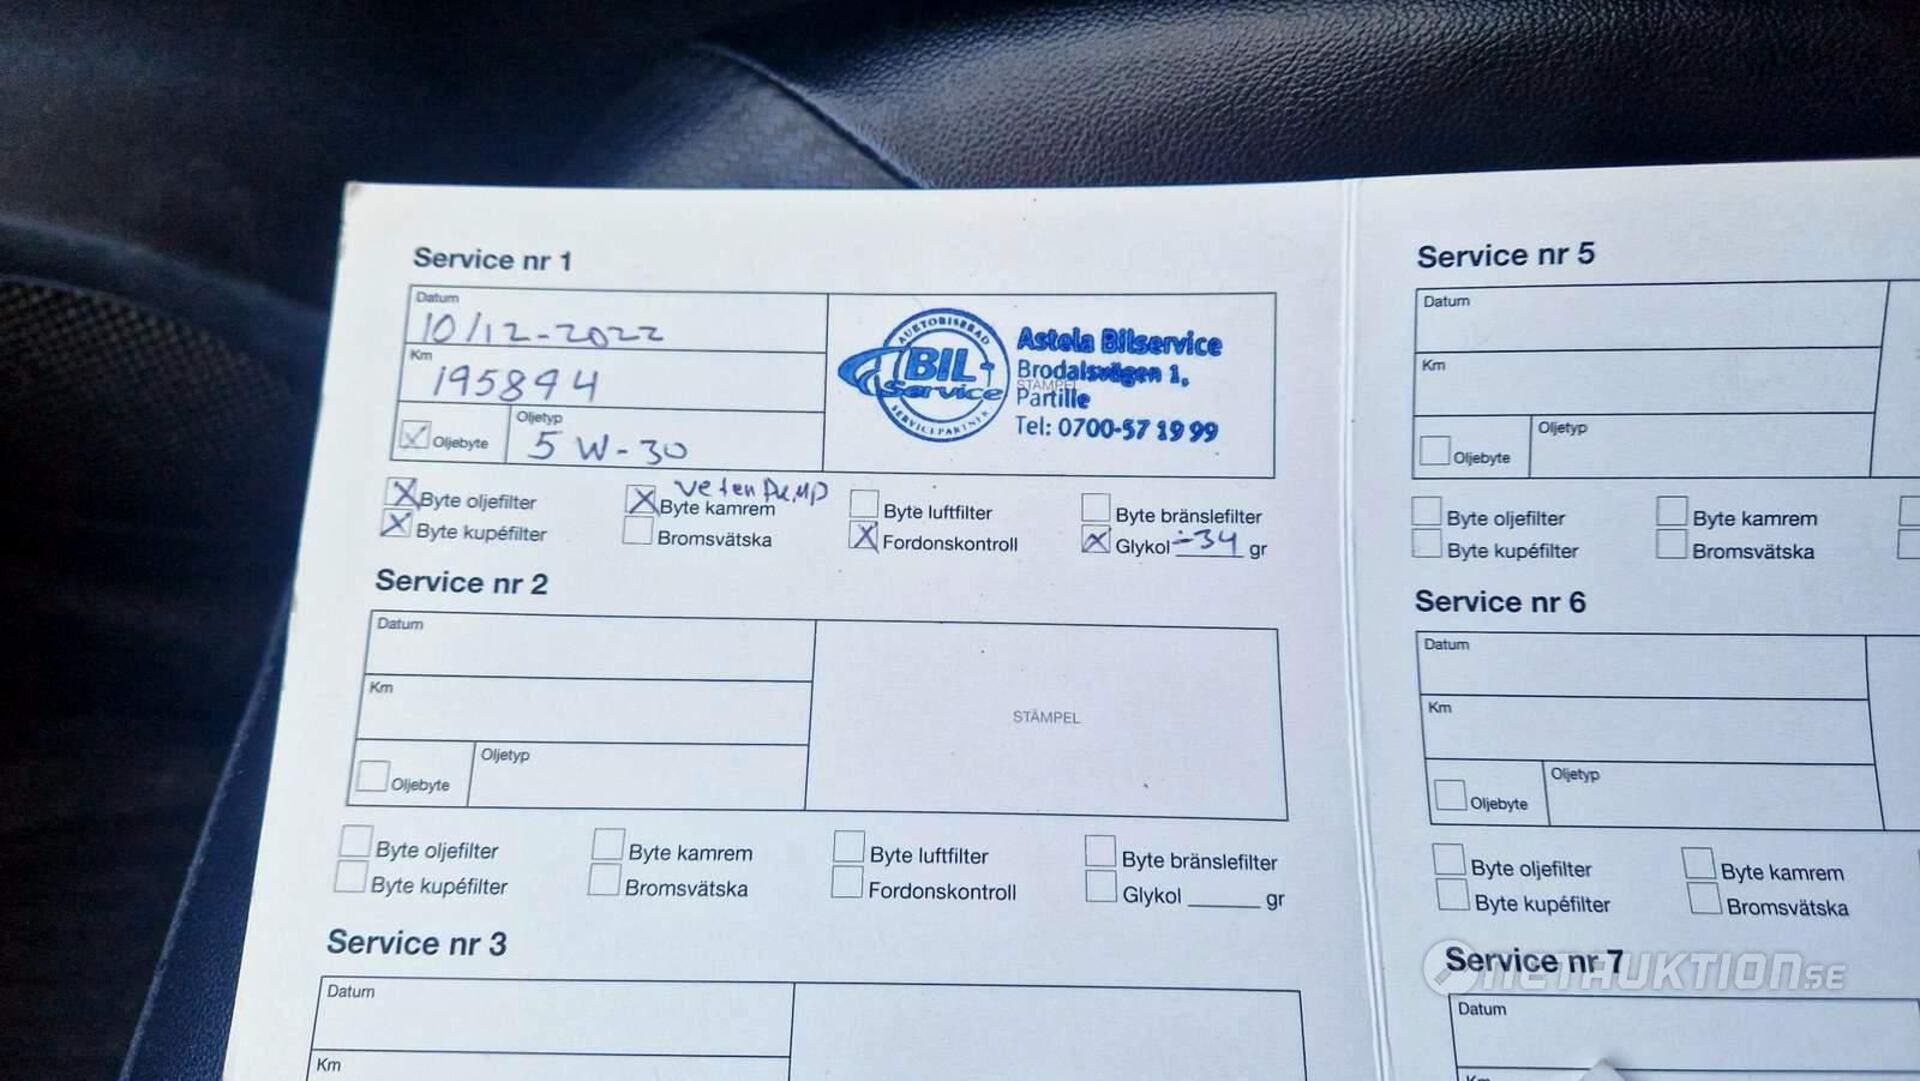 Service nr 1
Datum
10/12-2022
Km
195894
Oljebyte
Oljetyp
5W-30
AUKTORISERAD
BIL+
Service
SERVICEPARTNER
Astela Bilservice
Brodalsvägen 1,
STÄMPEL
Partille
Tel: 0700-57 19 99
Byte oljefilter
vetenpump
Byte kamrem
Byte luftfilter
Byte bränslefilter
Byte kupéfilter
Bromsvätska
Fordonskontroll
Glykol -34 gr
Service nr 2
Datum
Km
STÄMPEL
Oljebyte
Oljetyp
Byte oljefilter
Byte kamrem
Byte luftfilter
Byte bränslefilter
Byte kupéfilter
Bromsvätska
Fordonskontroll
Glykol gr
Service nr 3
Datum
Km
Service nr 5
Datum
Km
Oljebyte
Oljetyp
Byte oljefilter
Byte kamrem
Byte kupéfilter
Bromsvätska
Service nr 6
Datum
Km
Oljebyte
Oljetyp
Byte oljefilter
Byte kamrem
Byte kupéfilter
Bromsvätska
Service nr 7
NETAUKTION.SE
Datum
Km